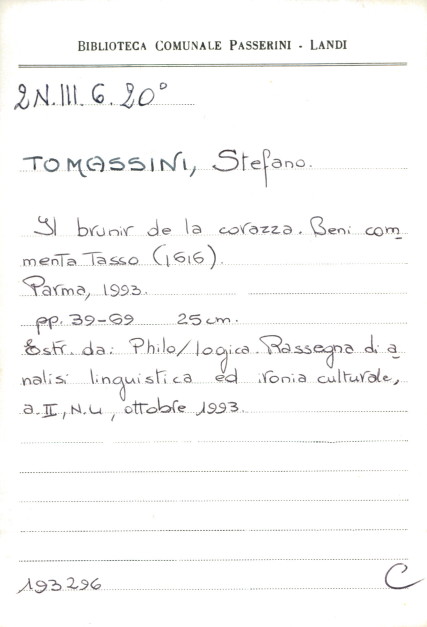 BIBLIOTECA COMUNALE PASSERINI - LANDI
2N.III.6.20°
TOMASSINI, Stefano.
Il brunir de la corazza. Beni com
menta Tasso (1616).
Parma, 1993.
pp. 39-69 25 cm.
Estr. da: Philo/logica. Rassegna di a
nalisi linguistica ed ironia culturale,
a. II, N.4, ottobre 1993.
193296 C